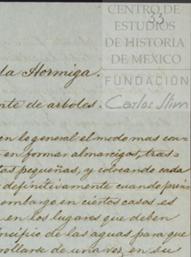 CENTRO DE
ESTUDIOS
DE HISTORIA
DE MEXICO
33
FUNDACIÓN
Carlos Slim
da Hormiga.
nte de arboles.
en lo general el modo mas con
en formar almacigas, tras
as pequeñas, y colocando cada
definitivamente cuando pren
embargo en ciertos casos es
en los lugares que deben
incipio de las aguas para que
rrollarse de una vez, en su